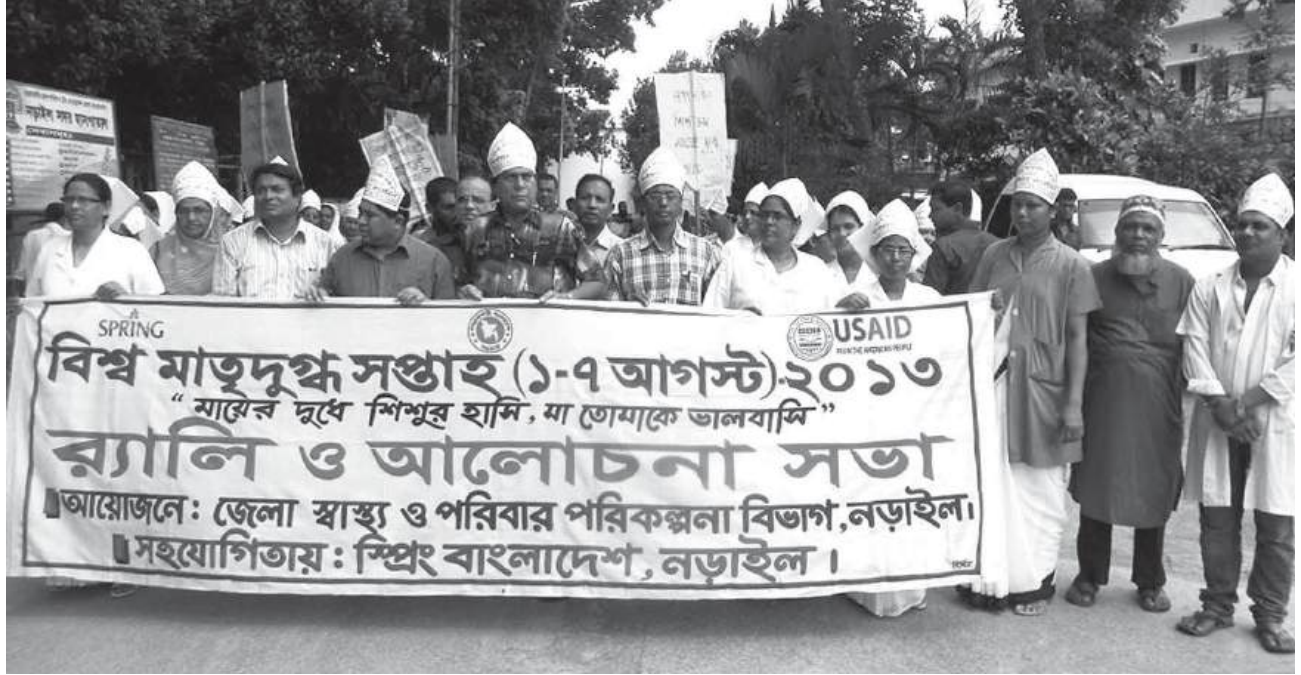 নড়াইল সদর হাসপাতাল
SPRING
USAID
FROM THE AMERICAN PEOPLE
বিশ্ব মাতৃদুগ্ধ সপ্তাহ (১-৭ আগস্ট)-২০১৩
“মায়ের দুধে শিশুর হাসি, মা তোমাকে ভালবাসি”
র‍্যালি ও আলোচনা সভা
আয়োজনে: জেলা স্বাস্থ্য ও পরিবার পরিকল্পনা বিভাগ, নড়াইল।
সহযোগিতায়: স্প্রিং বাংলাদেশ, নড়াইল।